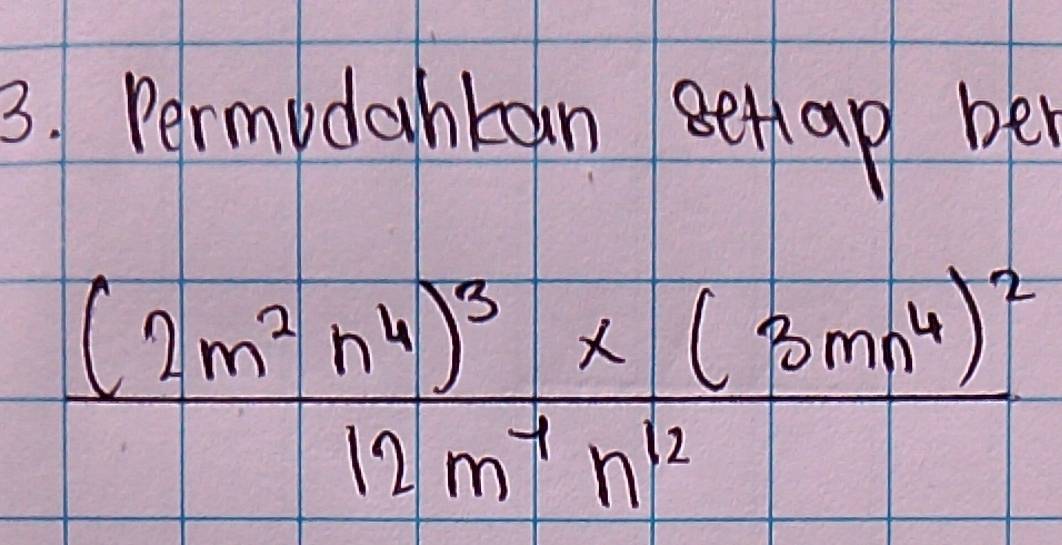 3. Permudahkan setiap ber
(2m² n⁴)³ × (3mn⁴)²
12 m⁻¹ n¹²